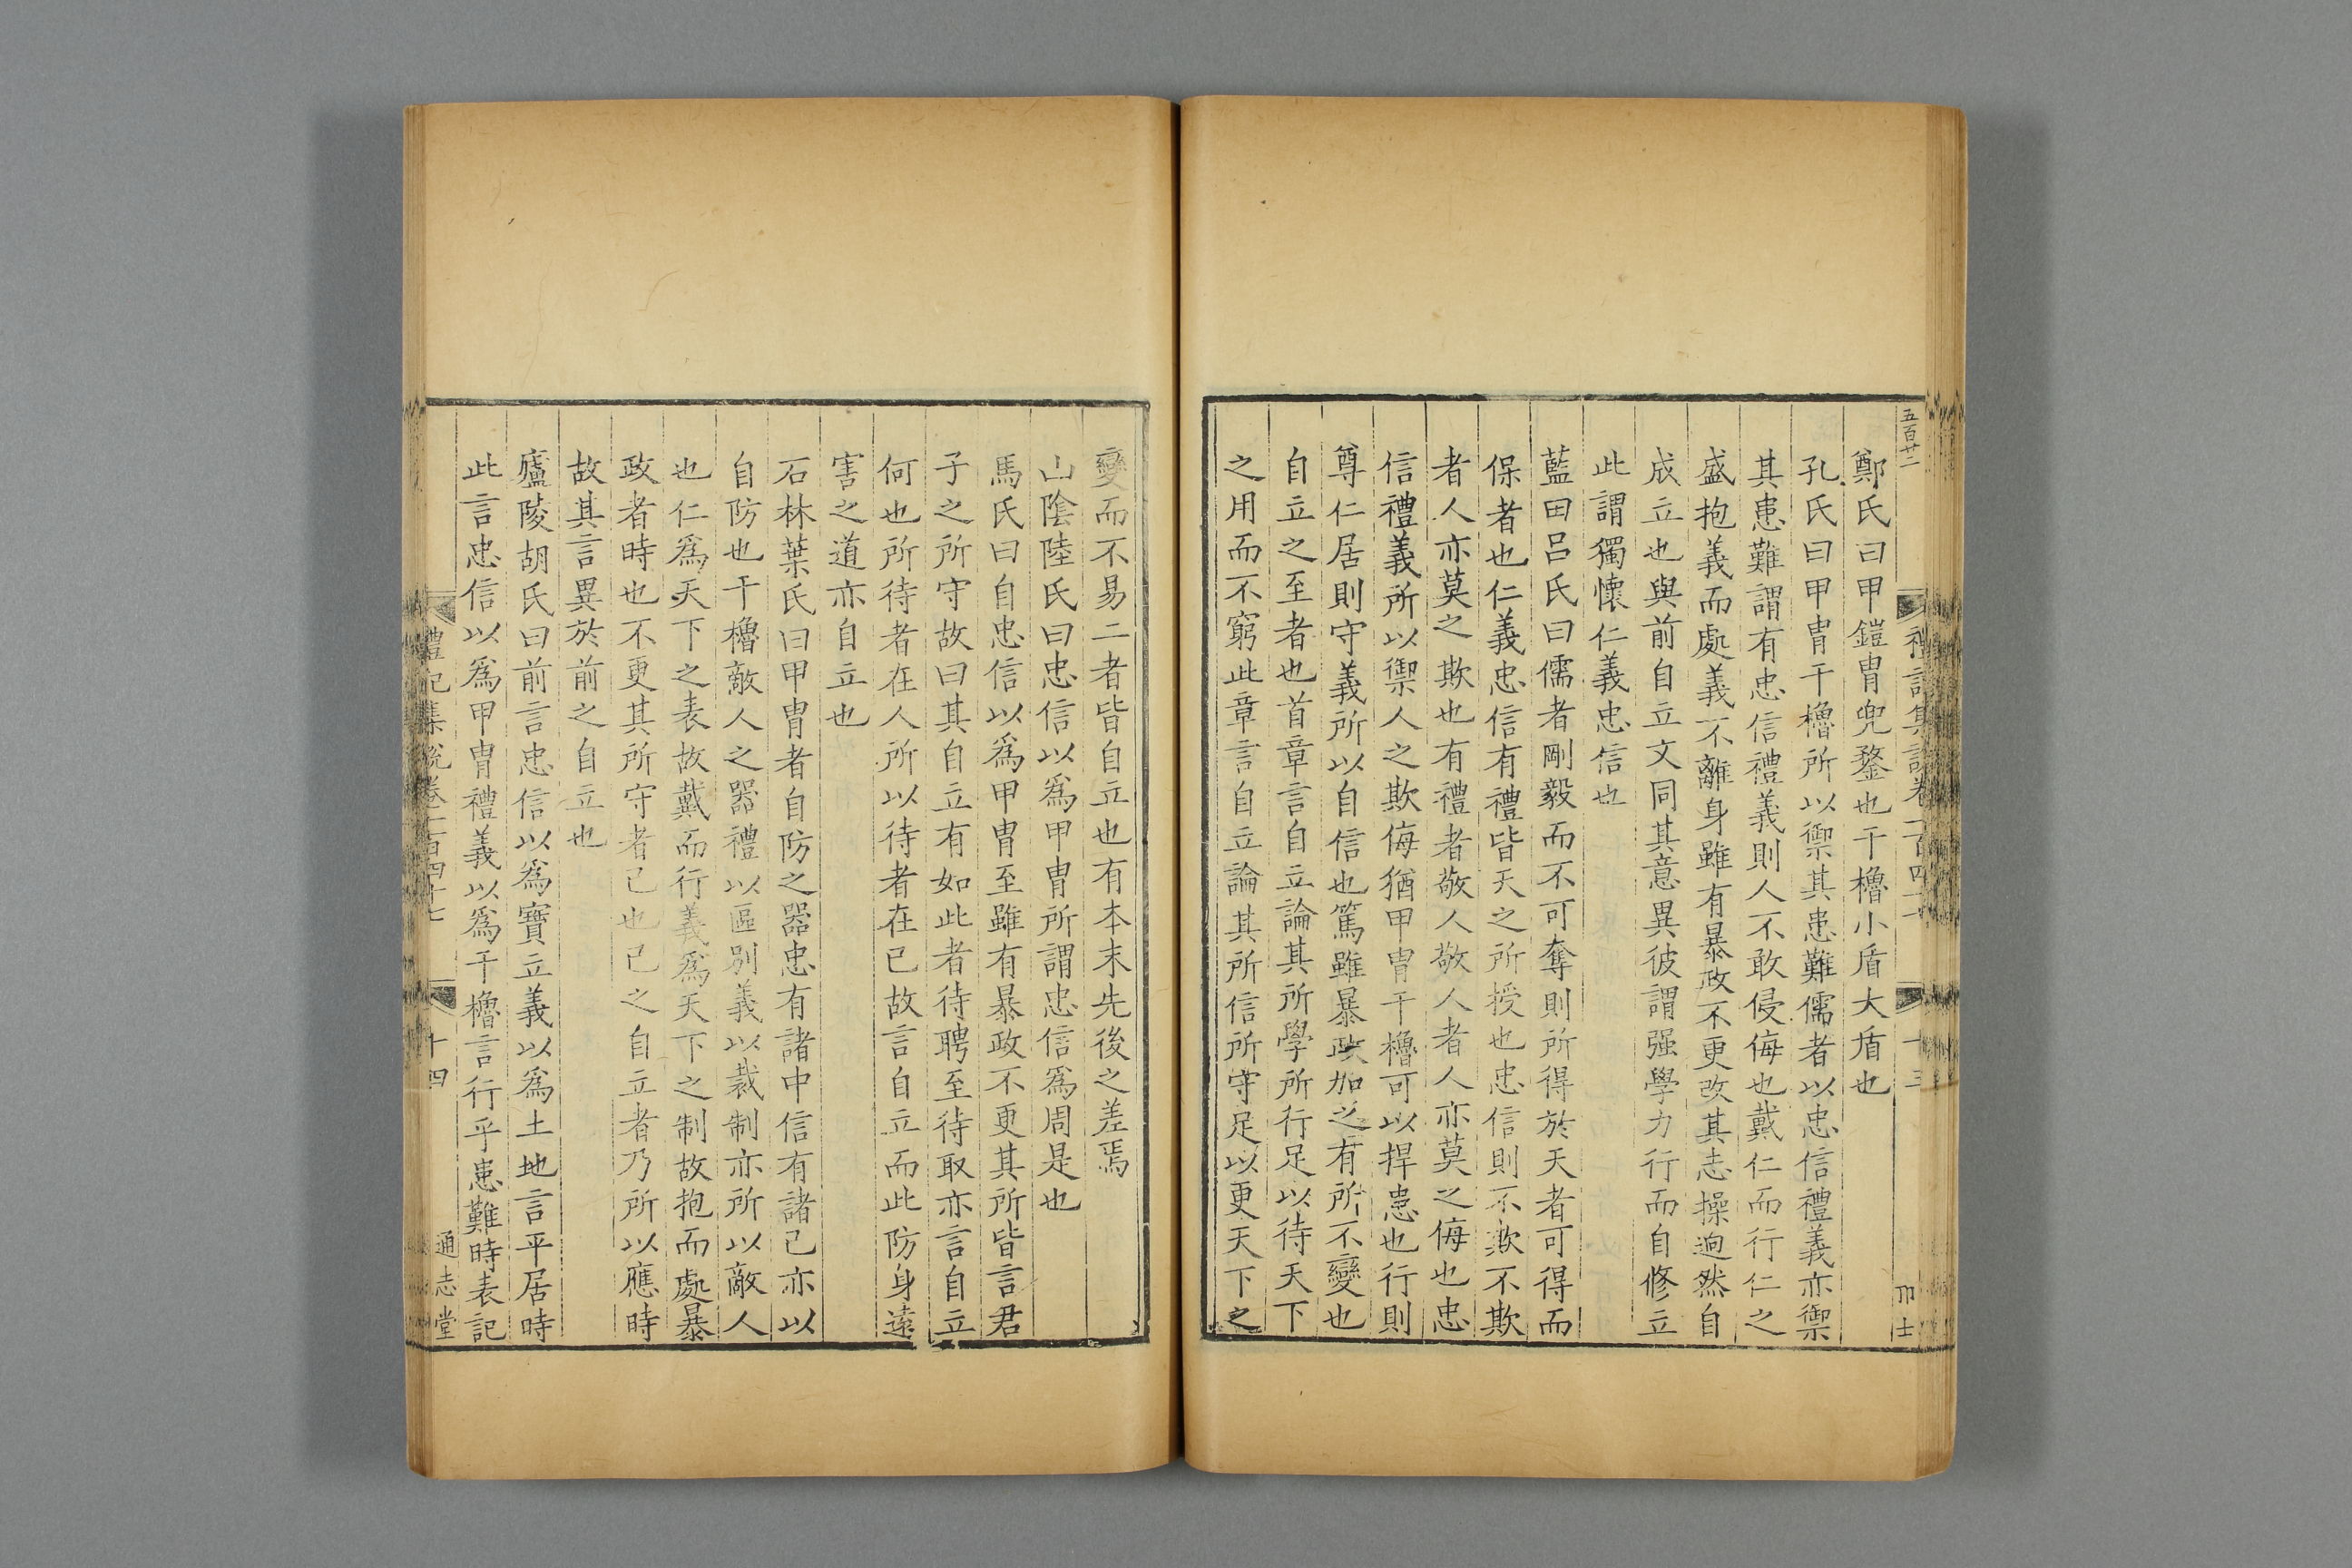 五百廿二
鄭氏曰甲鎧冑兜鍪也干櫓小盾大盾也
孔氏曰甲冑干櫓所以禦其患難儒者以忠信禮義亦禦
其患難謂有忠信禮義則人不敢侵侮也戴仁而行仁之
盛抱義而處義不離身雖有暴政不更改其志操逈然自
成立也與前自立文同其意異彼謂强學力行而自修立
此謂獨懷仁義忠信也
藍田吕氏曰儒者剛毅而不可奪則所得於天者可得而
保者也仁義忠信有禮皆天之所授也忠信則不欺不欺
者人亦莫之欺也有禮者敬人敬人者人亦莫之侮也忠
信禮義所以禦人之欺侮猶甲冑干櫓可以捍患也行則
尊仁居則守義所以自信也篤雖暴政加之有所不變也
自立之至者也首章言自立論其所學所行足以待天下
之用而不窮此章言自立論其所信所守足以更天下之
十三
變而不易二者皆自立也有本末先後之差焉
山陰陸氏曰忠信以爲甲冑所謂忠信爲周是也
馬氏曰自忠信以爲甲冑至雖有暴政不更其所皆言君
子之所守故曰其自立有如此者待聘至待取亦言自立
何也所待者在人所以待者在已故言自立而此防身遠
害之道亦自立也
石林葉氏曰甲冑者自防之器忠有諸中信有諸己亦以
自防也干櫓敵人之器禮以區别義以裁制亦所以敵人
也仁爲天下之表故戴而行義爲天下之制故抱而處暴
政者時也不更其所守者己也己之自立者乃所以應時
故其言異於前之自立也
廬陵胡氏曰前言忠信以爲寶立義以爲土地言平居時
此言忠信以爲甲冑禮義以爲干櫓言行乎患難時表記
禮記集說卷一百四十七
十四
通志堂